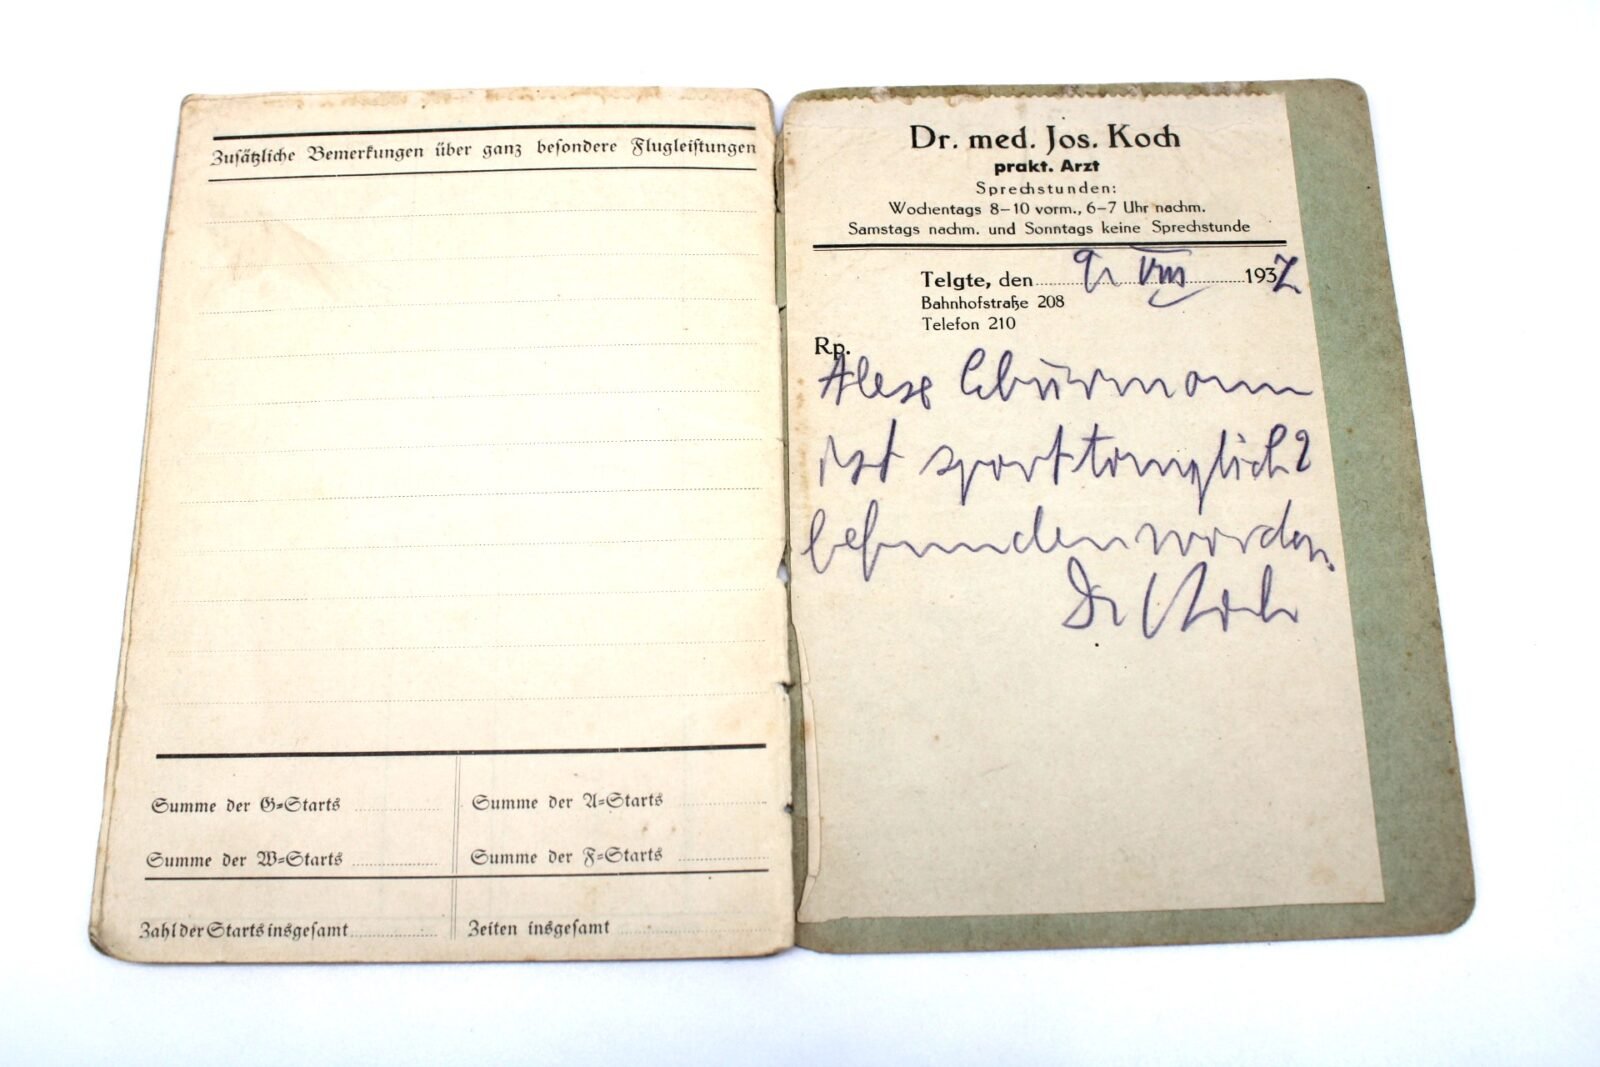 Zusätzliche Bemerkungen über ganz besondere Flugleistungen
Summe der G=Starts
Summe der A=Starts
Summe der W=Starts
Summe der F=Starts
Zahl der Starts insgesamt
Zeiten insgesamt
Dr. med. Jos. Koch
prakt. Arzt
Sprechstunden:
Wochentags 8–10 vorm., 6–7 Uhr nachm.
Samstags nachm. und Sonntags keine Sprechstunde
Telgte, den 9. VIII 1937
Bahnhofstraße 208
Telefon 210
Rp.
Alex
ist sporttauglich
befunden worden.
Dr Koch